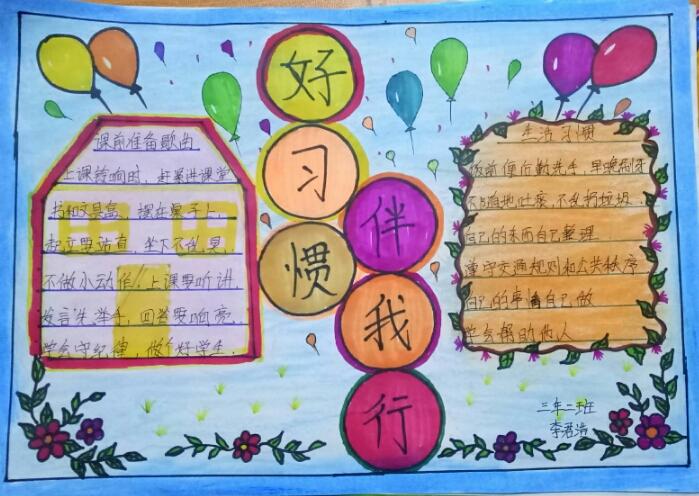 好
习
惯
伴
我
行
课前准备歌曲
上课铃响时，赶紧进课堂
书和文具盒，摆在桌子上，
起立要站直，坐下不乱晃，
不做小动作，上课要听讲，
发言先举手，回答要响亮，
学会守纪律，做个好学生，
生活习惯
饭前便后勤洗手，早晚刷牙
不随地吐痰，不乱扔垃圾，
自己的东西自己整理
遵守交通规则和公共秩序
自己的事情自己做
学会帮助他人
三年二班
李君浩